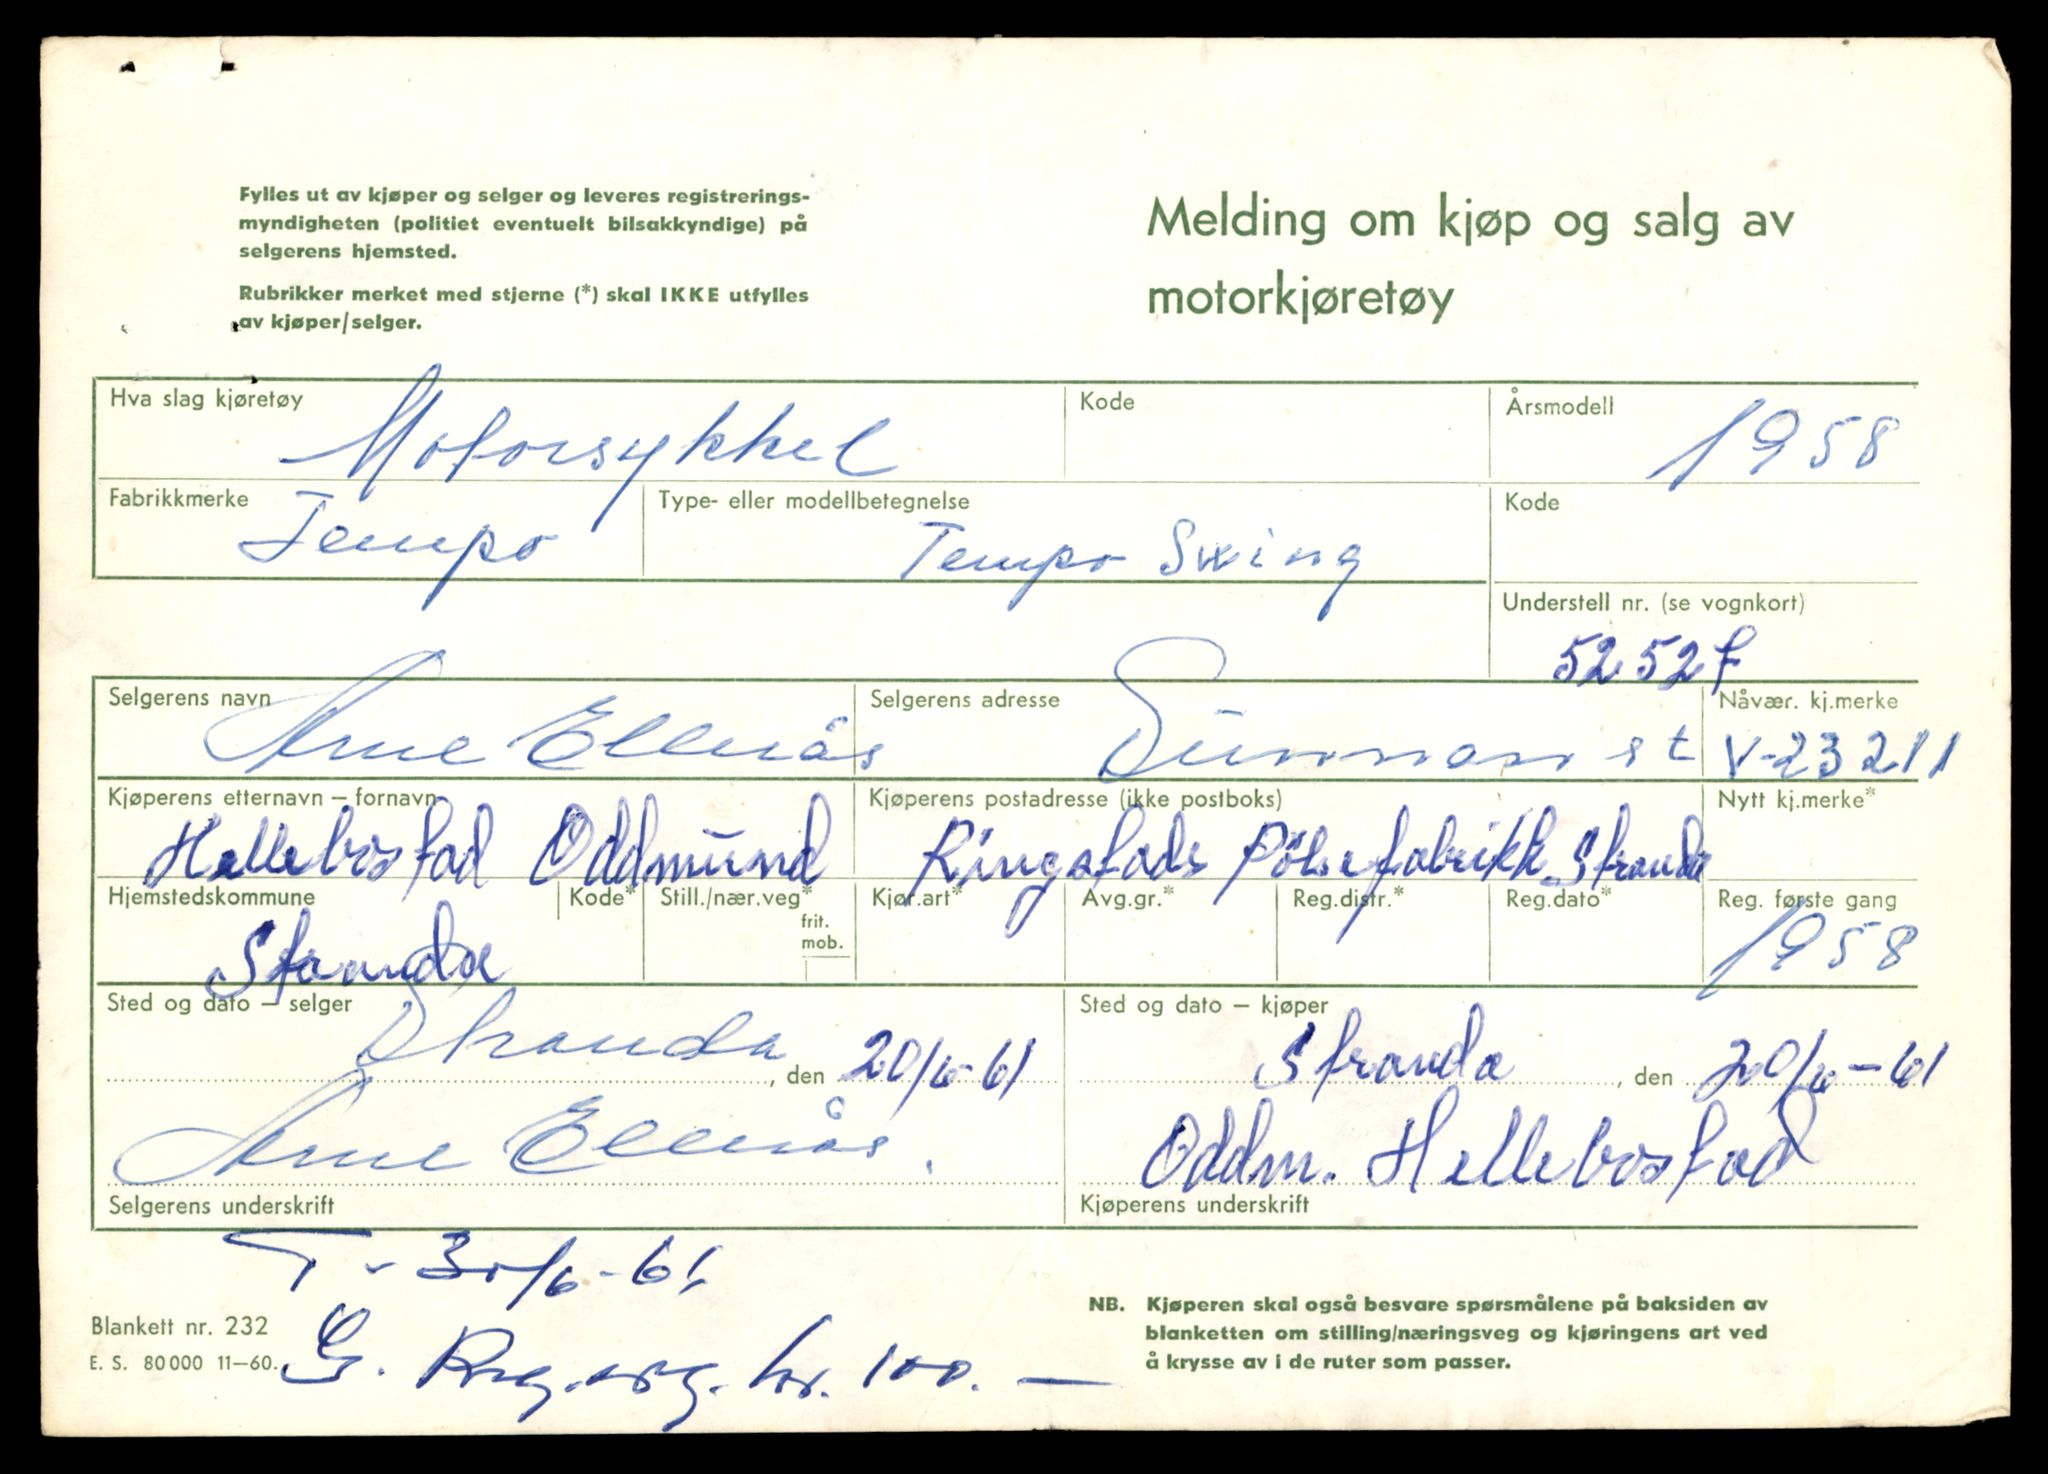 Fylles ut av kjøper og selger og leveres registrerings-
myndigheten (politiet eventuelt bilsakkyndige) på
selgerens hjemsted.
Rubrikker merket med stjerne (*) skal IKKE utfylles
av kjøper/selger.
Melding om kjøp og salg av
motorkjøretøy
Hva slag kjøretøy Motorsykkel Kode Årsmodell 1958
Fabrikkmerke Tempo Type- eller modellbetegnelse Tempo Swing Kode
Understell nr. (se vognkort)
5252f
Selgerens navn Arne Ellnås Selgerens adresse st Nåvær. kj.merke V-23211
Kjøperens etternavn – fornavn Hellebostad Oddmund Kjøperens postadresse (ikke postboks) Ringstads Pölsefabrikk Stranda Nytt kj.merke*
Hjemstedskommune Stranda Kode* Still./nær.veg* frit. mob. Kjør.art* Avg.gr.* Reg.distr.* Reg.dato* Reg. første gang 1958
Sted og dato – selger Stranda, den 20/6-61 Sted og dato – kjøper Stranda, den 20/6-61
Arne Ellnås. Oddm. Hellebostad
Selgerens underskrift Kjøperens underskrift
T - 30/6-61
Blankett nr. 232
E. S. 80 000 11–60.
G. Reg.avg. kr. 100.—
NB. Kjøperen skal også besvare spørsmålene på baksiden av
blanketten om stilling/næringsveg og kjøringens art ved
å krysse av i de ruter som passer.